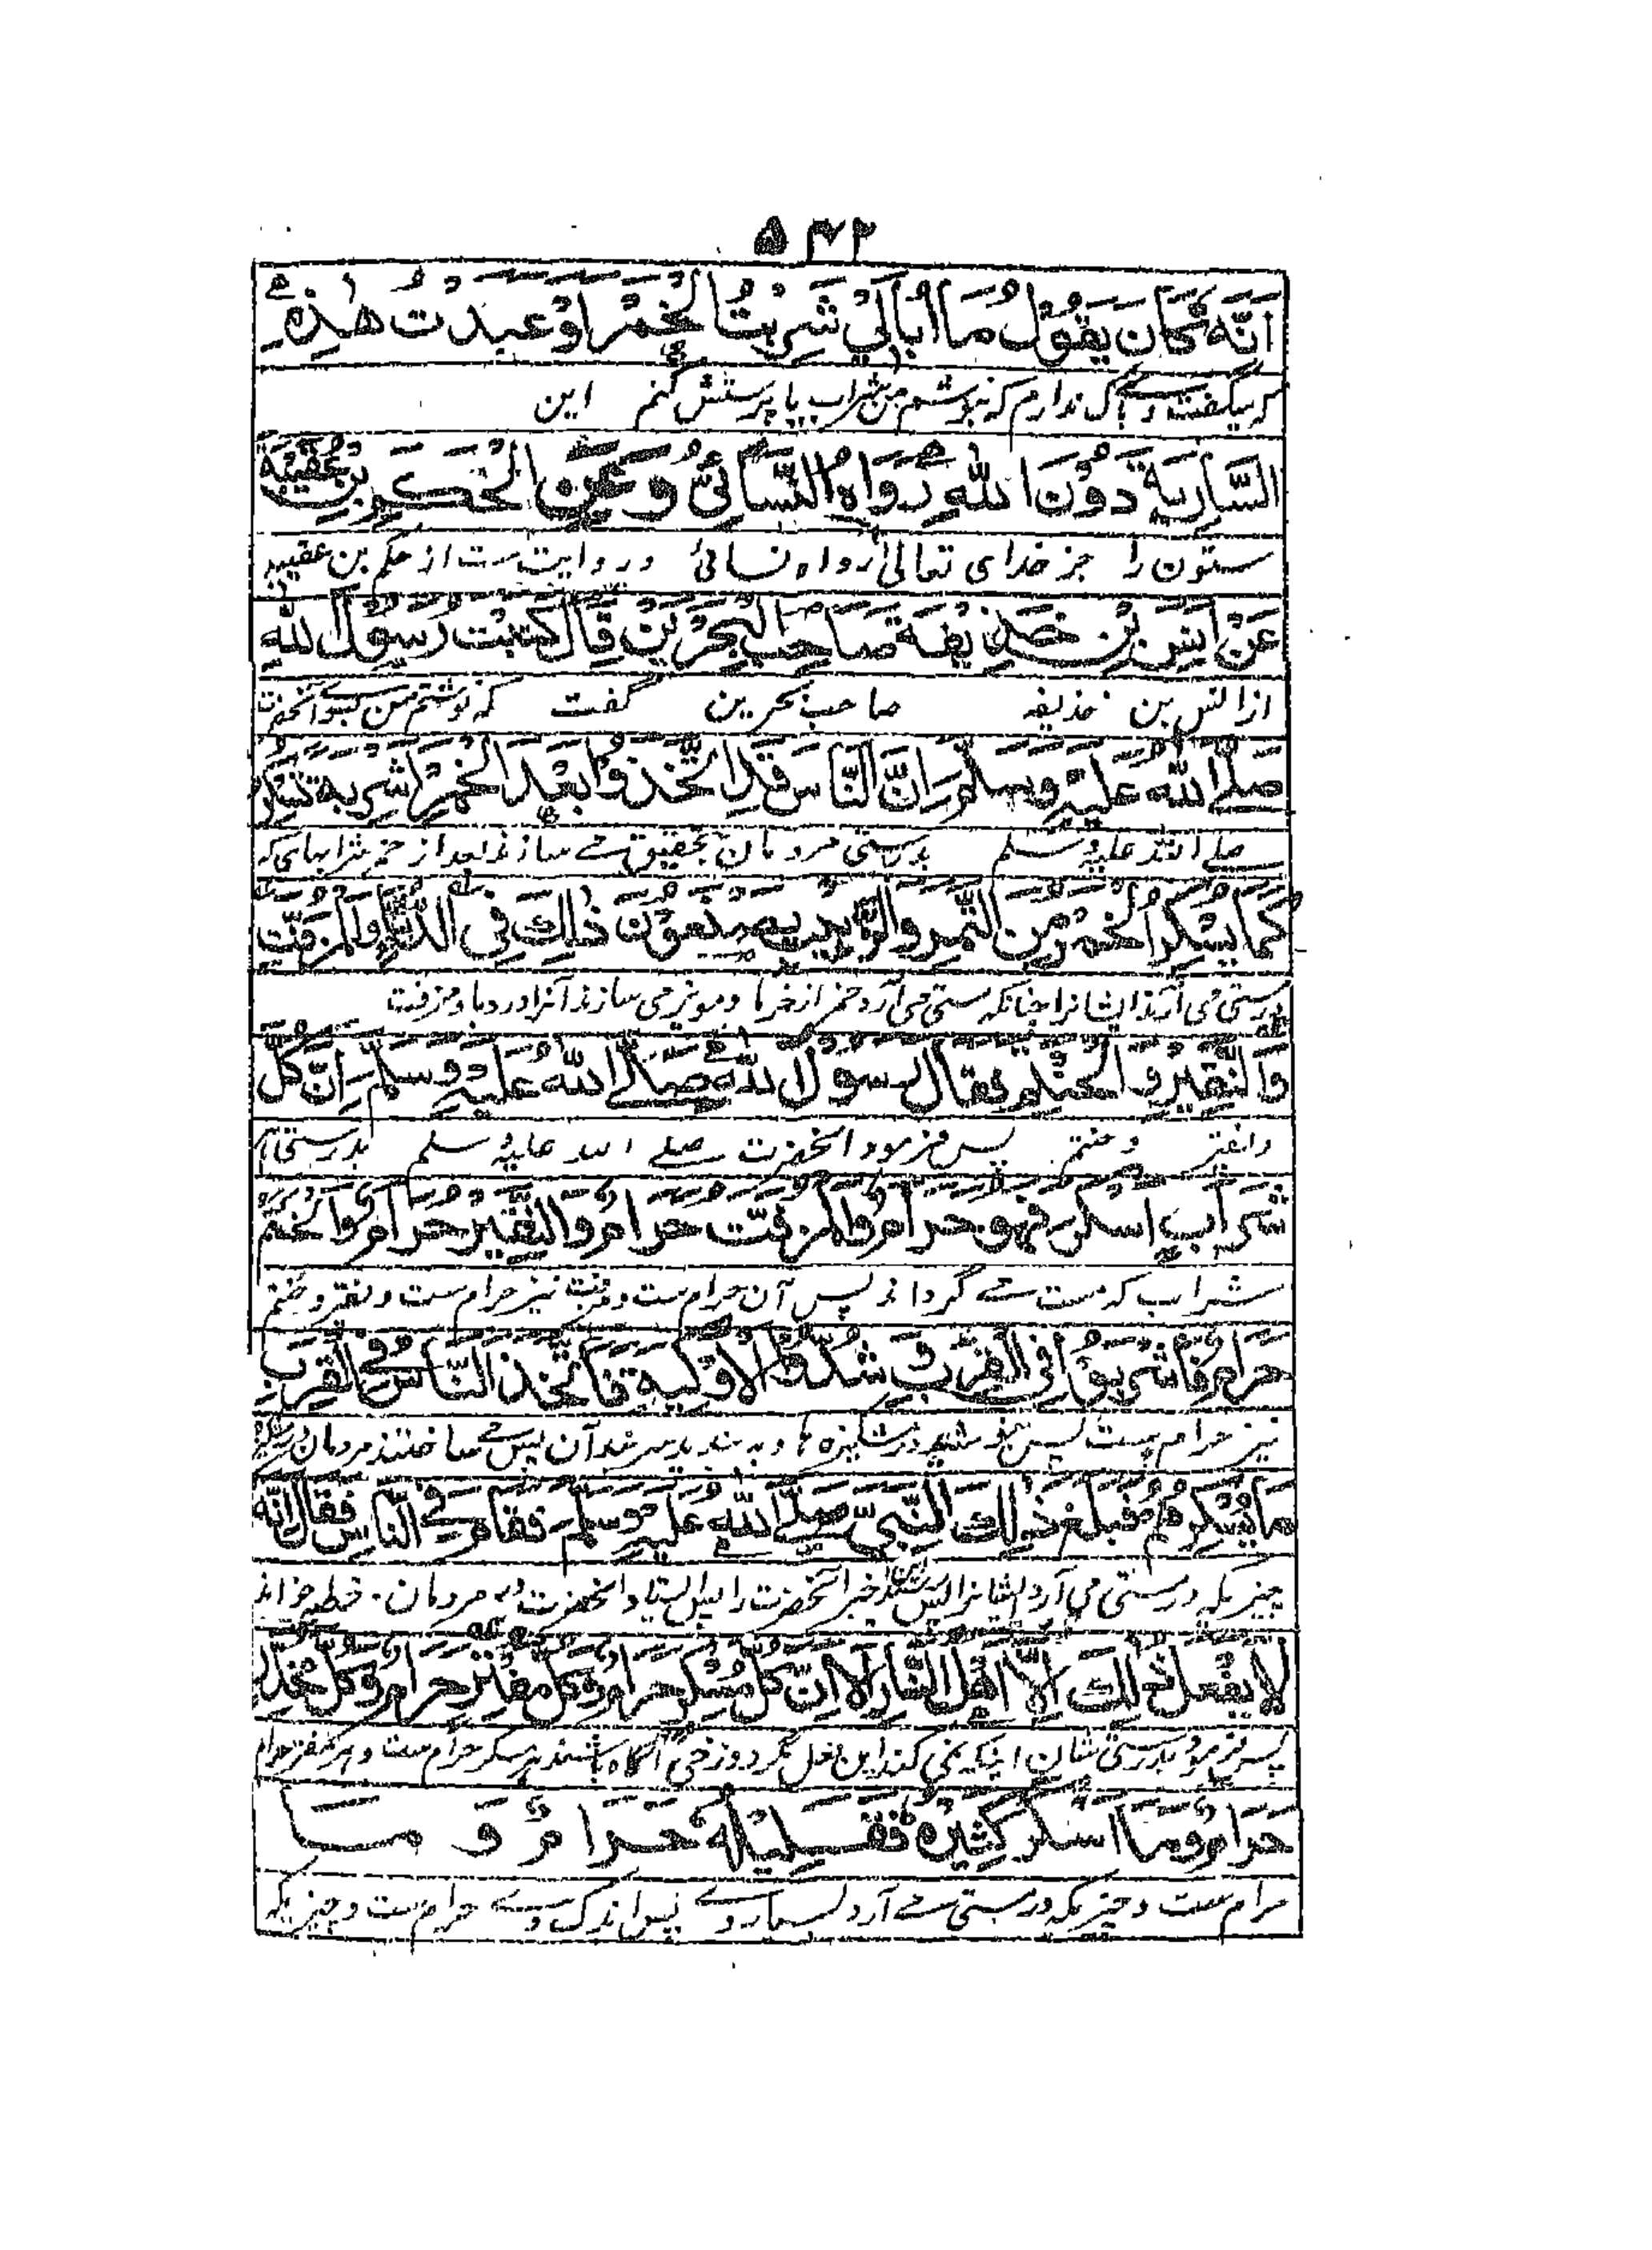 ۵۴۲
اَنَّهٗ كَانَ يَقُوْلُ مَا اُبَالِيْ شَرِبْتُ الْخَمْرَ اَوْ عَبَدْتُ هٰذِهِ
كه ميگفت باك ندارم كه بنوشم من شراب يا پرستش كنم اين
السَّارِيَةَ دُوْنَ اللهِ رَوَاهُ النَّسَائِيُّ وَعَنِ الْحَكَمِ بْنِ عُتَيْبَةَ
ستون را جز خداى تعالى رواه نسائى و روايت ست از حكم بن عتيبه
عَنْ اَنَسِ بْنِ حُذَيْفَةَ صَاحِبِ الْبَحْرَيْنِ قَالَ كَتَبْتُ رَسُوْلَ اللهِ
از انس بن حذيفه صاحب بحرين گفت كه نوشتم من بسوى آنحضرت
صَلَّى اللهُ عَلَيْهِ وَسَلَّمَ اِنَّ النَّاسَ قَدِ اتَّخَذُوْا بَعْدَ الْخَمْرِ اَشْرِبَةً تُسْكِرُ
صلے الله عليه وسلم بدرستى مردمان بتحقيق مے سازند بعد از خمر شرابهاى كه
كَمَا يُسْكِرُ الْخَمْرُ مِنَ التَّمْرِ وَالزَّبِيْبِ يَصْنَعُوْنَ ذٰلِكَ فِي الدُّبَّاءِ وَالْمُزَفَّتِ
مى آرند ايشانرا چنانكه مستى مى آرد خمر از خرما و مويز مى سازند آنرا در دبا و مزفت
وَالنَّقِيْرِ وَالْحَنْتَمِ فَقَالَ رَسُوْلُ اللهِ صَلَّى اللهُ عَلَيْهِ وَسَلَّمَ اِنَّ كُلَّ
و نقير و حنتم پس فرمود آنحضرت صلے الله عليه سلم بدرستى
شَرَابٍ اَسْكَرَ فَهُوَ حَرَامٌ وَالْمُزَفَّتُ حَرَامٌ وَالنَّقِيْرُ حَرَامٌ وَالْحَنْتَمُ
شراب كه مست مے گرداند پس آن حرام ست و مزفت نيز حرام ست و نقير و حنتم
حَرَامٌ فَاشْرَبُوْا فِي الْقِرَبِ وَشُدُّوا الْاَوْكِيَةَ فَاتَّخَذَ النَّاسُ فِي الْقِرَبِ
نيز حرام ست پس بنوشيد در مشكيزه ها و به بنديد آن پس مے ساختند مردمان
مَا يُسْكِرُ فَبَلَغَ ذٰلِكَ النَّبِيَّ صَلَّى اللهُ عَلَيْهِ وَسَلَّمَ فَقَامَ فِي النَّاسِ فَقَالَ اِنَّهُ
چيزيكه در مستى مى آرد ايشانرا پس خبر آنحضرت را پس ايستاد آنحضرت مردمان خطبه خواند
لَا يَفْعَلُ ذٰلِكَ اِلَّا اَهْلُ النَّارِ اَلَا اِنَّ كُلَّ مُسْكِرٍ حَرَامٌ وَكُلَّ مُفَتِّرٍ حَرَامٌ وَكُلَّ مُخَدِّرٍ
پس فرمود بدرستى شان اينكه نمى كند اين فعل مگر دوزخى آگاه باشند هر مسكر حرام ست و هر مفتر حرام
حَرَامٌ وَمَا اَسْكَرَ كَثِيْرُهُ فَقَلِيْلُهٗ حَرَامٌ وَ مَا
حرام ست و چيزيكه در مستى مے آرد بسيار وے پس اندك وے حرام ست و چيزيكه